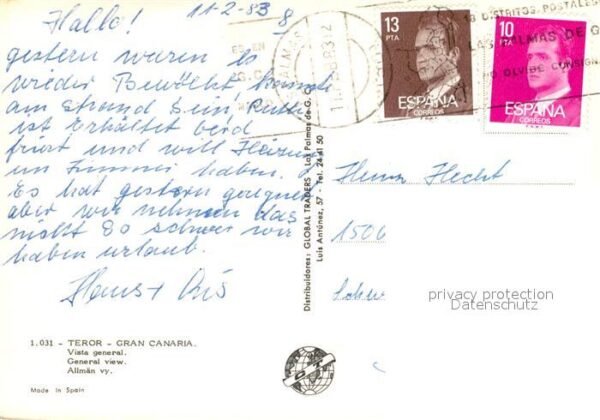 Hallo! 11-2-83 8
gestern waren es
wieder Bewölkt,
am Strand Sein,
ist Erkältet
friert und will Heizung
im Zimmer haben.
Es hat gestern geregnet
aber wir nehmen das
nicht so schwer wir
haben urlaub.
Hans +
1.031 - TEROR - GRAN CANARIA.
Vista general.
General view.
Allmän vy.
Made in Spain
Distribuidores: GLOBAL TRADERS
Luis Antúnez, 57 Tel. 24 41 50 Las Palmas de G. C.
13
PTA
ESPAÑA
CORREOS
10
PTA
ESPAÑA
CORREOS
DISTRITOS POSTALES
LAS PALMAS DE G
NO OLVIDE CONSIGN
Hans Hecht
1506
privacy protection
Datenschutz